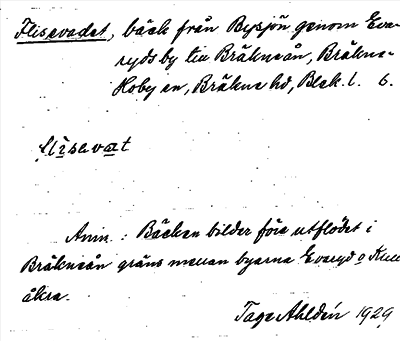 Flisevadet, bäck från Bysjön genom Eve-
ryds by till Bräkneån, Bräkne-
Hoby sn, Bräkne hd, Blek. l. 6.
flisevat
Anm.: Bäcken bildar före utflödet i
Bräkneån gräns mellan byarna Everyd o Kull
åkra.
Tage Ahldén 1929